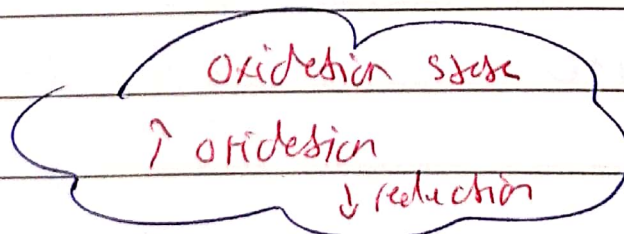 Oxidation state
↑ oxidation
↓ reduction